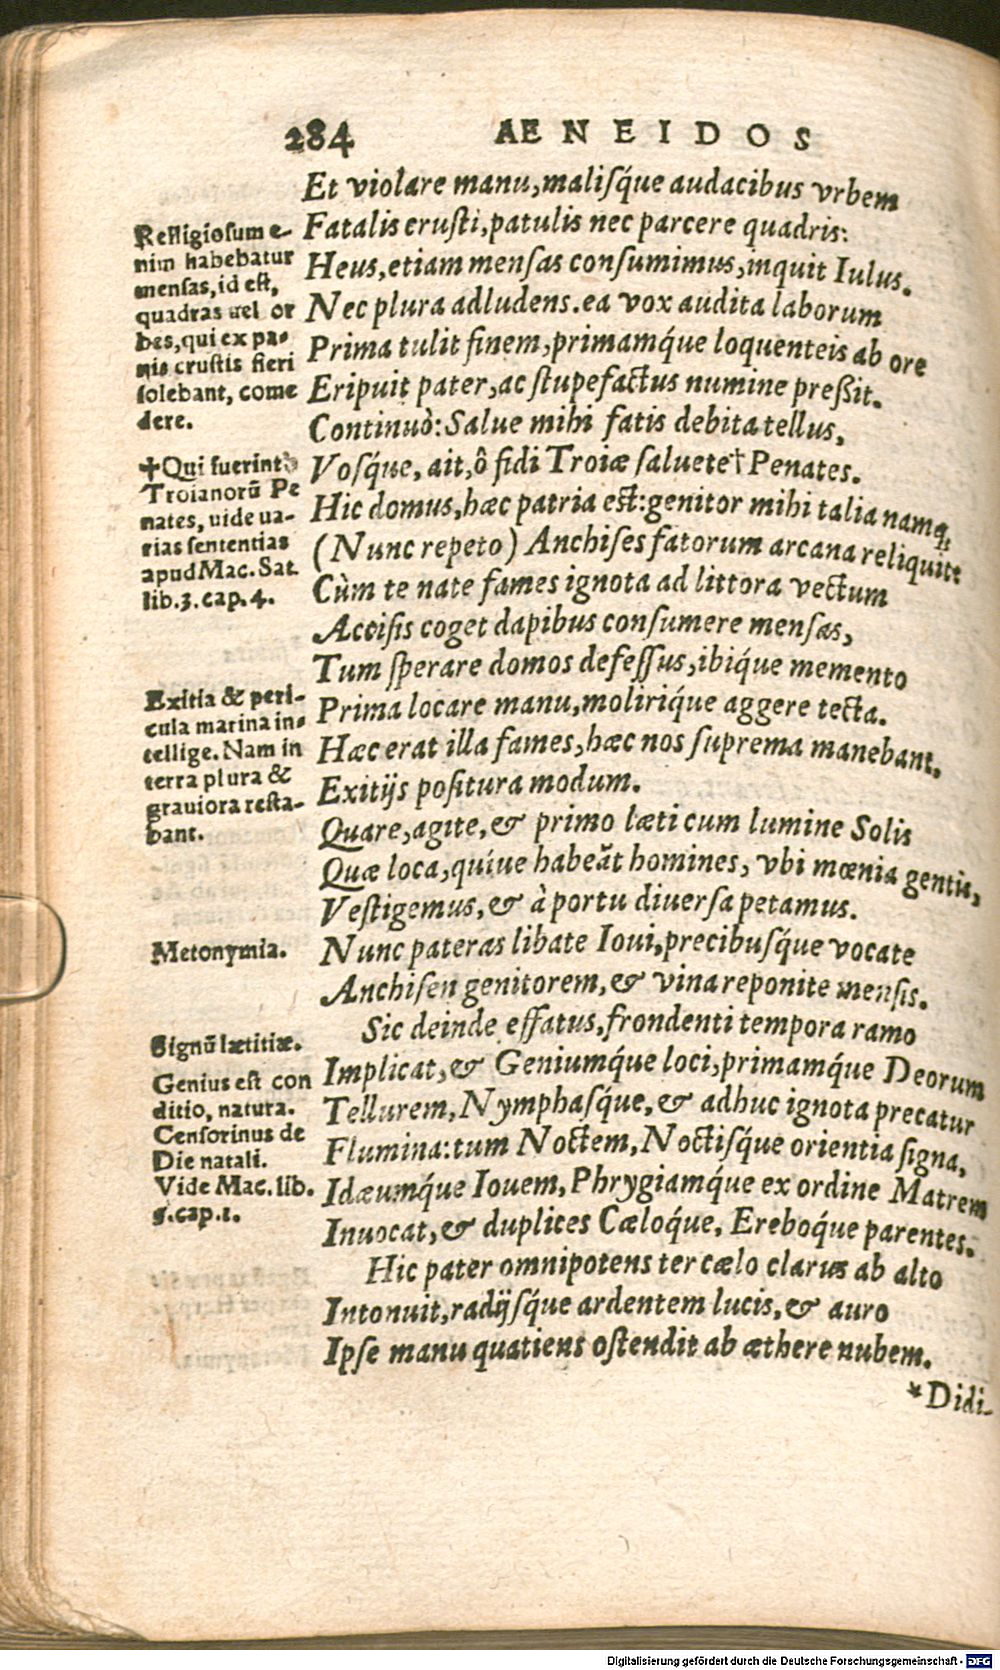 284 AENEIDOS
Et violare manu, malisq́ue audacibus vrbem
Fatalis crusti, patulis nec parcere quadris:
Heus, etiam mensas consumimus, inquit Iulus.
Nec plura adludens. ea vox audita laborum
Prima tulit finem, primamq́ue loquenteis ab ore
Eripuit pater, ac stupefactus numine preßit.
Continuò: Salue mihi fatis debita tellus,
Vosq́ue, ait, ô fidi Troiæ saluete† Penates.
Hic domus, hæc patria est: genitor mihi talia namq,
(Nunc repeto) Anchises fatorum arcana reliquit:
Cùm te nate fames ignota ad littora vectum
Accisis coget dapibus consumere mensas,
Tum sperare domos defessus, ibiq́ue memento
Prima locare manu, moliriq́ue aggere tecta.
Hæc erat illa fames, hæc nos suprema manebant.
Exitijs positura modum.
Quare, agite, & primo læti cum lumine Solis
Quæ loca, quíue habeãt homines, vbi mœnia gentis,
Vestigemus, & à portu diuersa petamus.
Nunc pateras libate Ioui, precibusq́ue vocate
Anchisen genitorem, & vina reponite mensis.
Sic deinde effatus, frondenti tempora ramo
Implicat, & Geniumq́ue loci, primamq́ue Deorum
Tellurem, Nymphasq́ue, & adhuc ignota precatur
Flumina: tum Noctem, Noctisq́ue orientia signa,
Idæumq́ue Iouem, Phrygiamq́ue ex ordine Matrem
Inuocat, & duplices Cæloq́ue, Ereboq́ue parentes.
Hic pater omnipotens ter cælo clarus ab alto
Intonuit, radijsq́ue ardentem lucis, & auro
Ipse manu quatiens ostendit ab æthere nubem.
*Didi-
Relligiosum e-
nim habebatur
mensas, id est,
quadras uel or
bes, qui ex pa-
nis crustis fieri
solebant, come
dere.
†Qui fuerint
Troianorũ Pe
nates, uide ua-
rias sententias
apud Mac. Sat.
lib.3. cap.4.
Exitia & peri-
cula marina in-
tellige. Nam in
terra plura &
grauiora resta-
bant.
Metonymia.
Signũ lætitiæ.
Genius est con
ditio, natura.
Censorinus de
Die natali.
Vide Mac. lib.
5. cap.1.
Digitalisierung gefördert durch die Deutsche Forschungsgemeinschaft - DFG